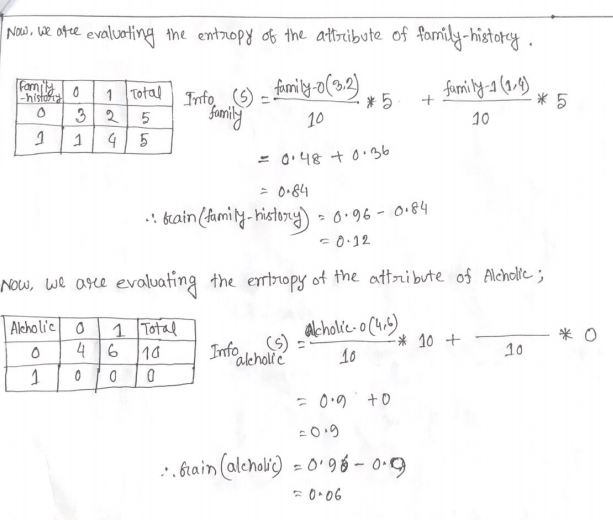 Now, we are evaluating the entropy of the attribute of family-history.
family-history 0 1 Total
0 3 2 5
1 1 4 5
Info family (S) = family-0(3,2) / 10 * 5 + family-1(1,4) / 10 * 5
= 0.48 + 0.36
= 0.84
∴ Gain(family-history) = 0.96 - 0.84
= 0.12
Now, we are evaluating the entropy of the attribute of Alcholic;
Alcholic 0 1 Total
0 4 6 10
1 0 0 0
Info alcholic (S) = Alcholic-0(4,6) / 10 * 10 + ――― / 10 * 0
= 0.9 + 0
= 0.9
∴ Gain(alcholic) = 0.96 - 0.9
= 0.06